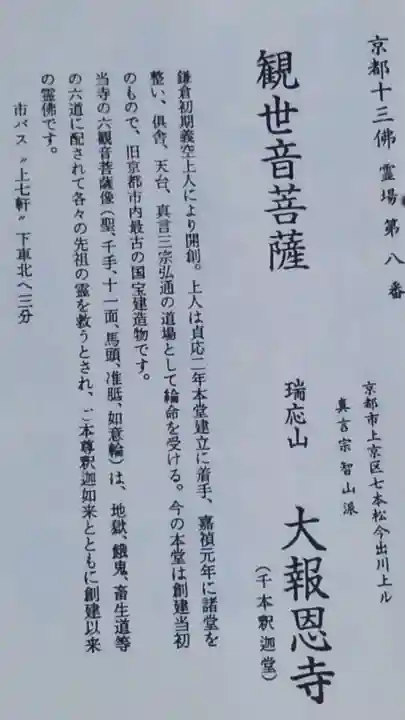 京都十三佛霊場第八番
観世音菩薩
京都市上京区七本松今出川上ル
真言宗智山派
瑞応山 大報恩寺
(千本釈迦堂)
鎌倉初期義空上人により開創。上人は貞応二年本堂建立に着手、嘉禎元年に諸堂を
整い、倶舎、天台、真言三宗弘通の道場として綸命を受ける。今の本堂は創建当初
のもので、旧京都市内最古の国宝建造物です。
当寺の六観音菩薩像(聖、千手、十一面、馬頭、准胝、如意輪)は、地獄、餓鬼、畜生道等
の六道に配されて各々の先祖の霊を救うとされ、ご本尊釈迦如来とともに創建以来
の霊佛です。
市バス〝上七軒〟下車北へ三分